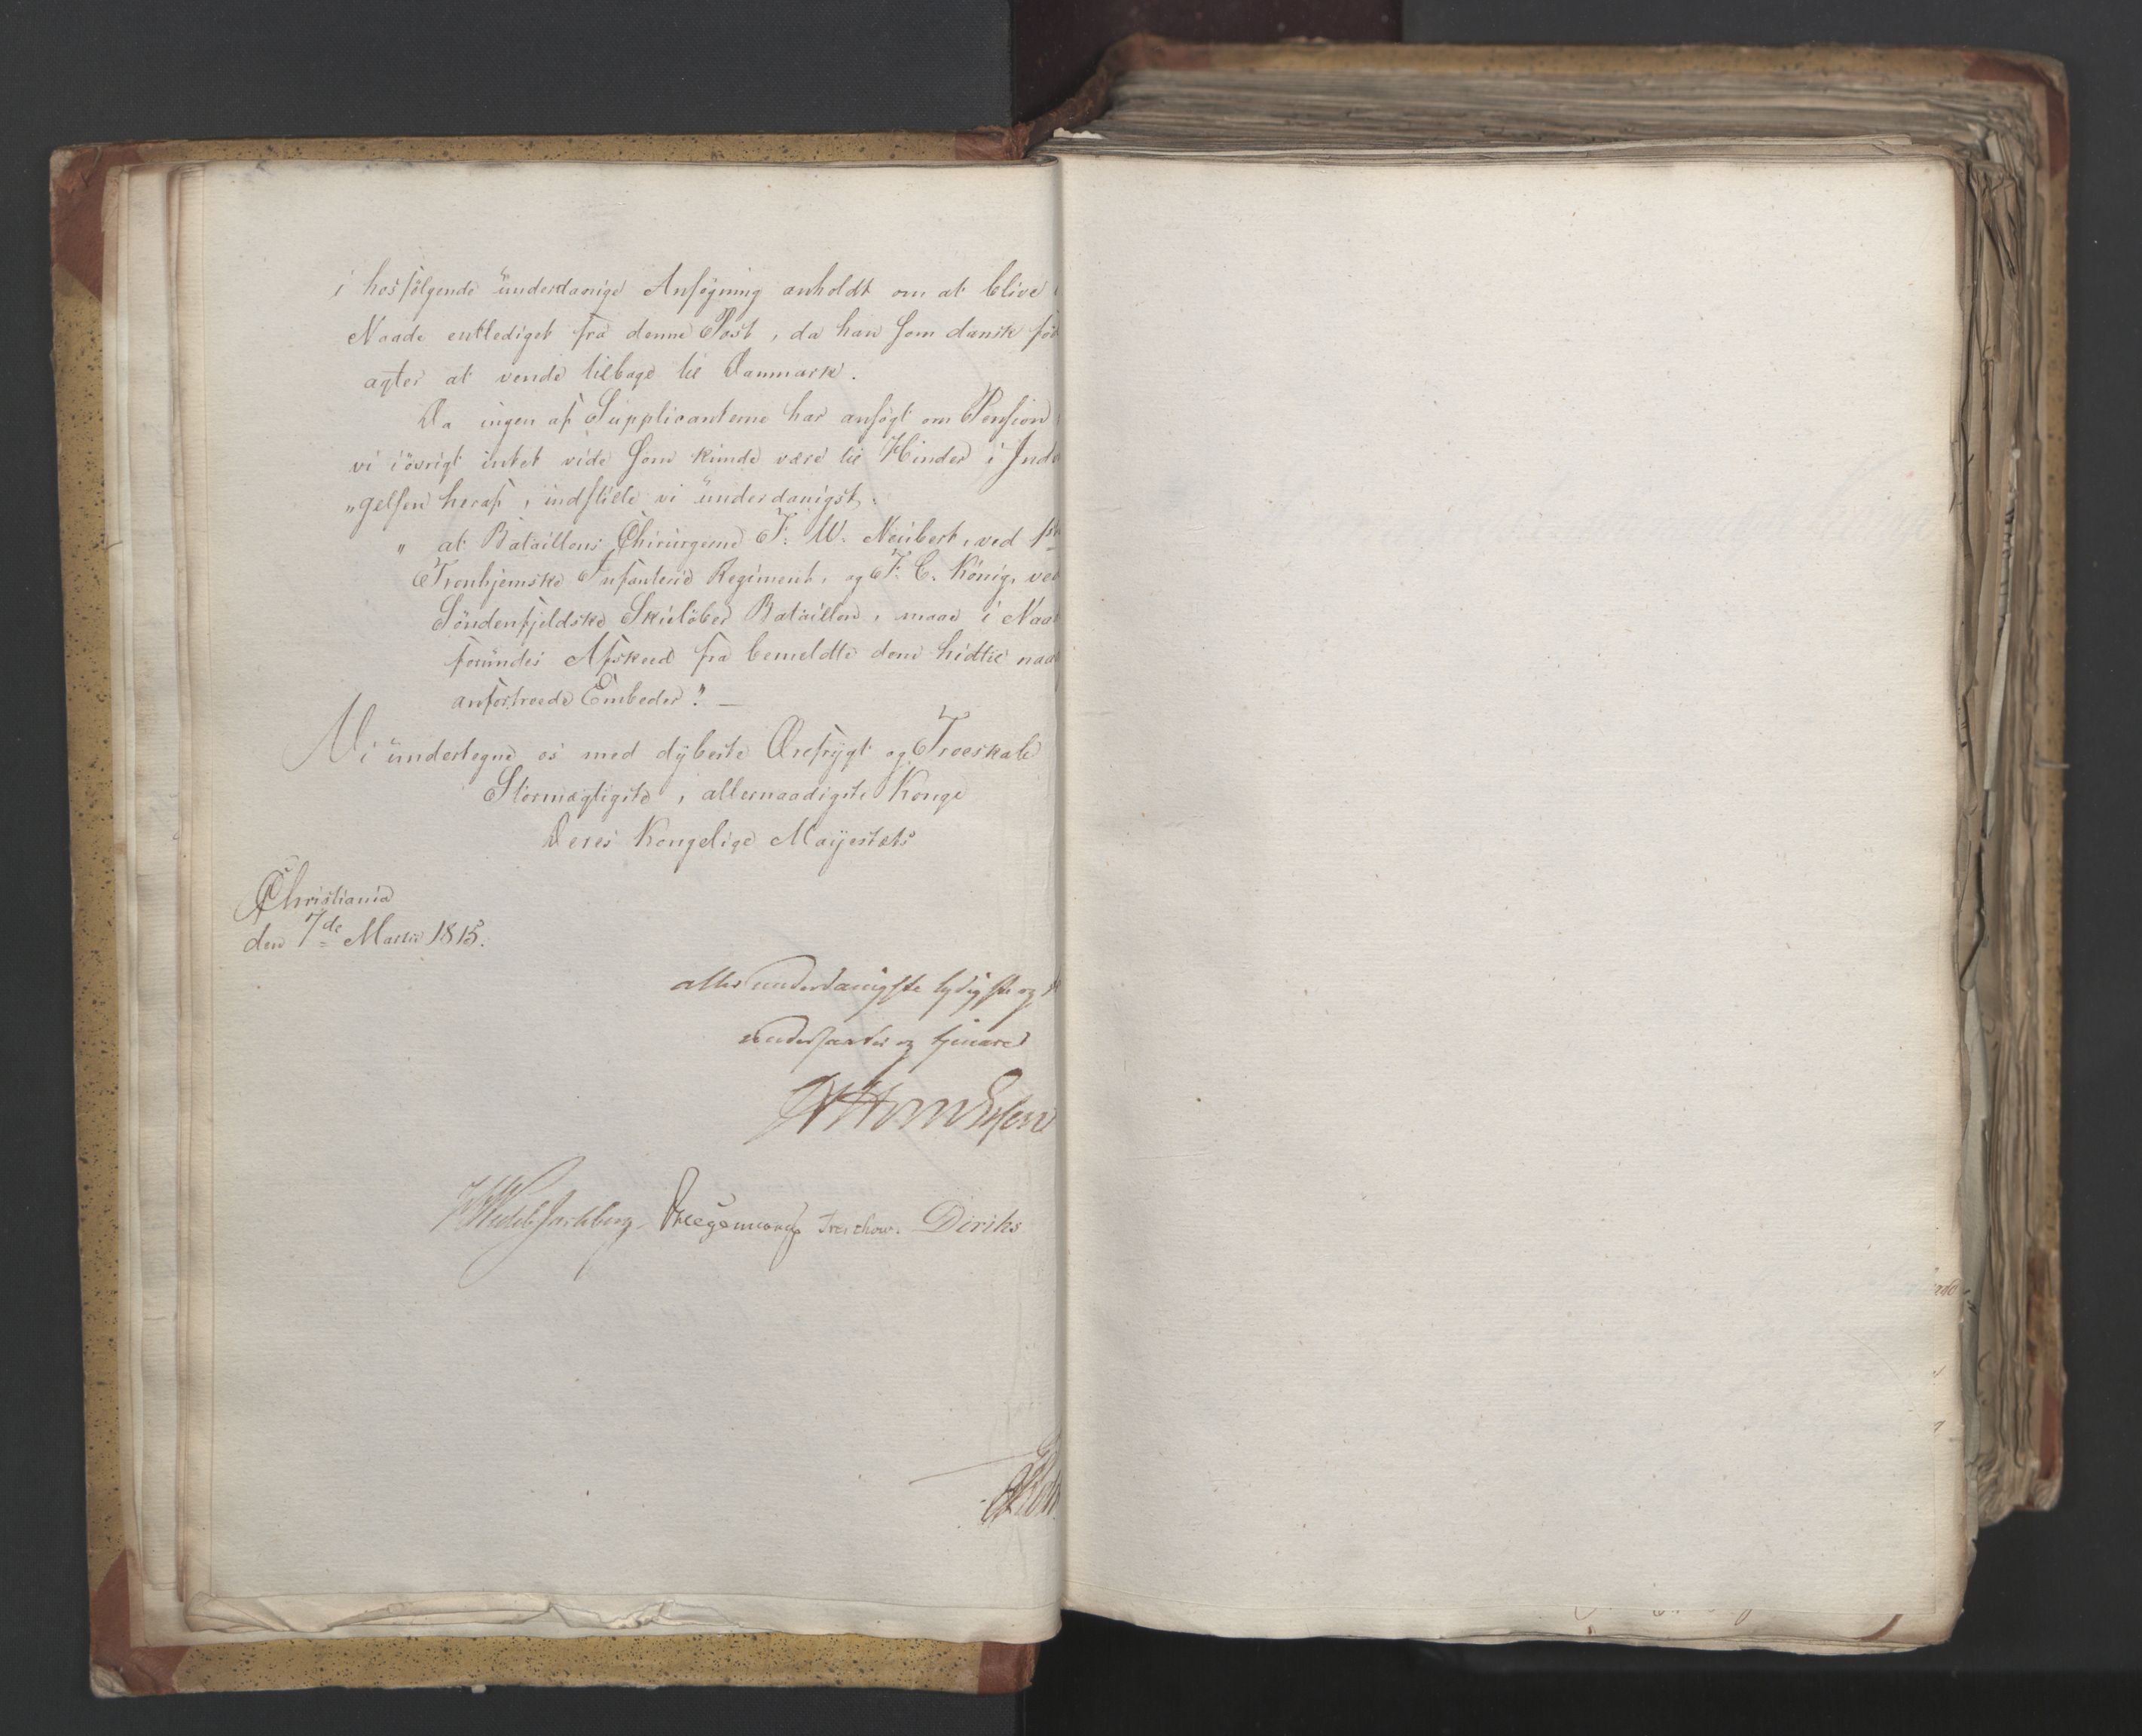 i hosfølgende ünderdanige Ansøgning anholdt om at blive
Naade entlediget fra denne Post, da han som dansk fød
agter at vende tilbage til Danmark.
Da ingen af Supplicanterne har ansøgt om Pension
vi iövrigt intet vide som kunde være til Hinder i Ind
„gelsen heraf, indstille vi ünderdanigst.
„ at Bataillons Chirurgerne F. W. Neübert, ved 1ste
Tronhjemske Infanterie Regiment, og F. C. König, ved
Söndenfjeldske Skielöber Bataillon, maae i Naa
foründes Afskeed fra bemeldte dem hidtil naa
anfortroede Embeder." —
Vi ündertegne os med dÿbeste Ærefrÿgt og Troeskab
Stormægtigste, allernaadigste Konge
Deres Kongelige Maÿestæts
Christiania
den 7de Martii 1815.
allerunderdanigste lydigste og
undersaatter og tjenere
Wedel Jarlsberg Treschow. Diriks